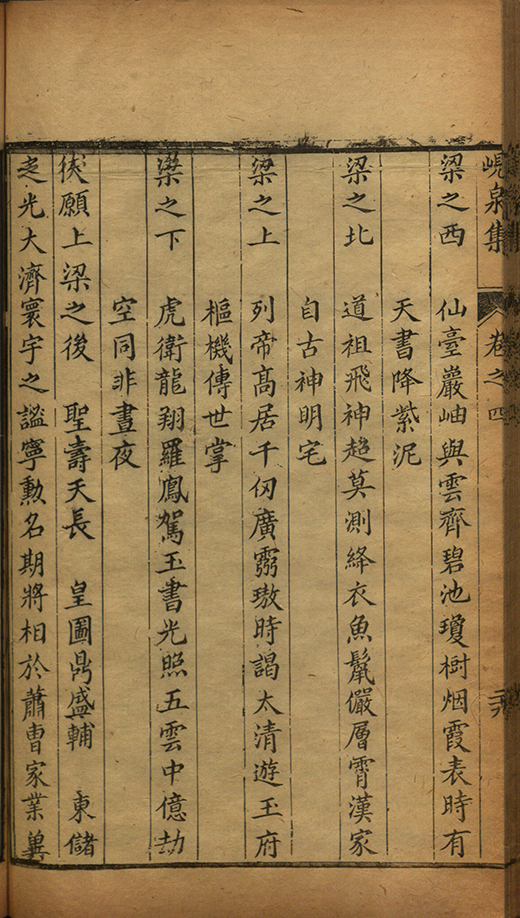 峴泉集 卷之四
梁之西 仙臺巖岫與雲齊碧池瓊樹烟霞表時有
天書降紫泥
梁之北 道祖飛神超莫測絳衣魚鬣儼層霄漢家
自古神明宅
梁之上 列帝高居千仞廣霛璈時謁太清遊玉府
樞機傳世掌
梁之下 虎衛龍翔羅鳳駕玉書光照五雲中億劫
空同非晝夜
伏願上梁之後 聖壽天長 皇圖鼎盛輔 東儲
之光大濟寰宇之謐寧勳名期將相於蕭曹家業